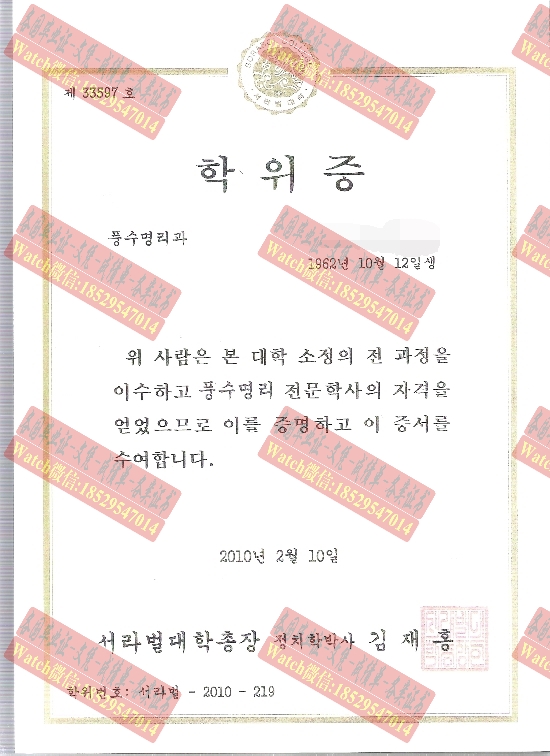 서라벌대학
제 33597 호
학위증
풍수명리과
1962년 10월 12일생
위 사람은 본 대학 소정의 전 과정을
이수하고 풍수명리 전문학사의 자격을
얻었으므로 이를 증명하고 이 증서를
수여합니다.
2010년 2월 10일
서라벌대학총장 정치학박사 김재홍
학위번호: 서라벌 - 2010 - 219
Watch微信:18529547014
Watch微信:18529547014
Watch微信:18529547014
Watch微信:18529547014
Watch微信:18529547014
Watch微信:18529547014
Watch微信:18529547014
Watch微信:18529547014